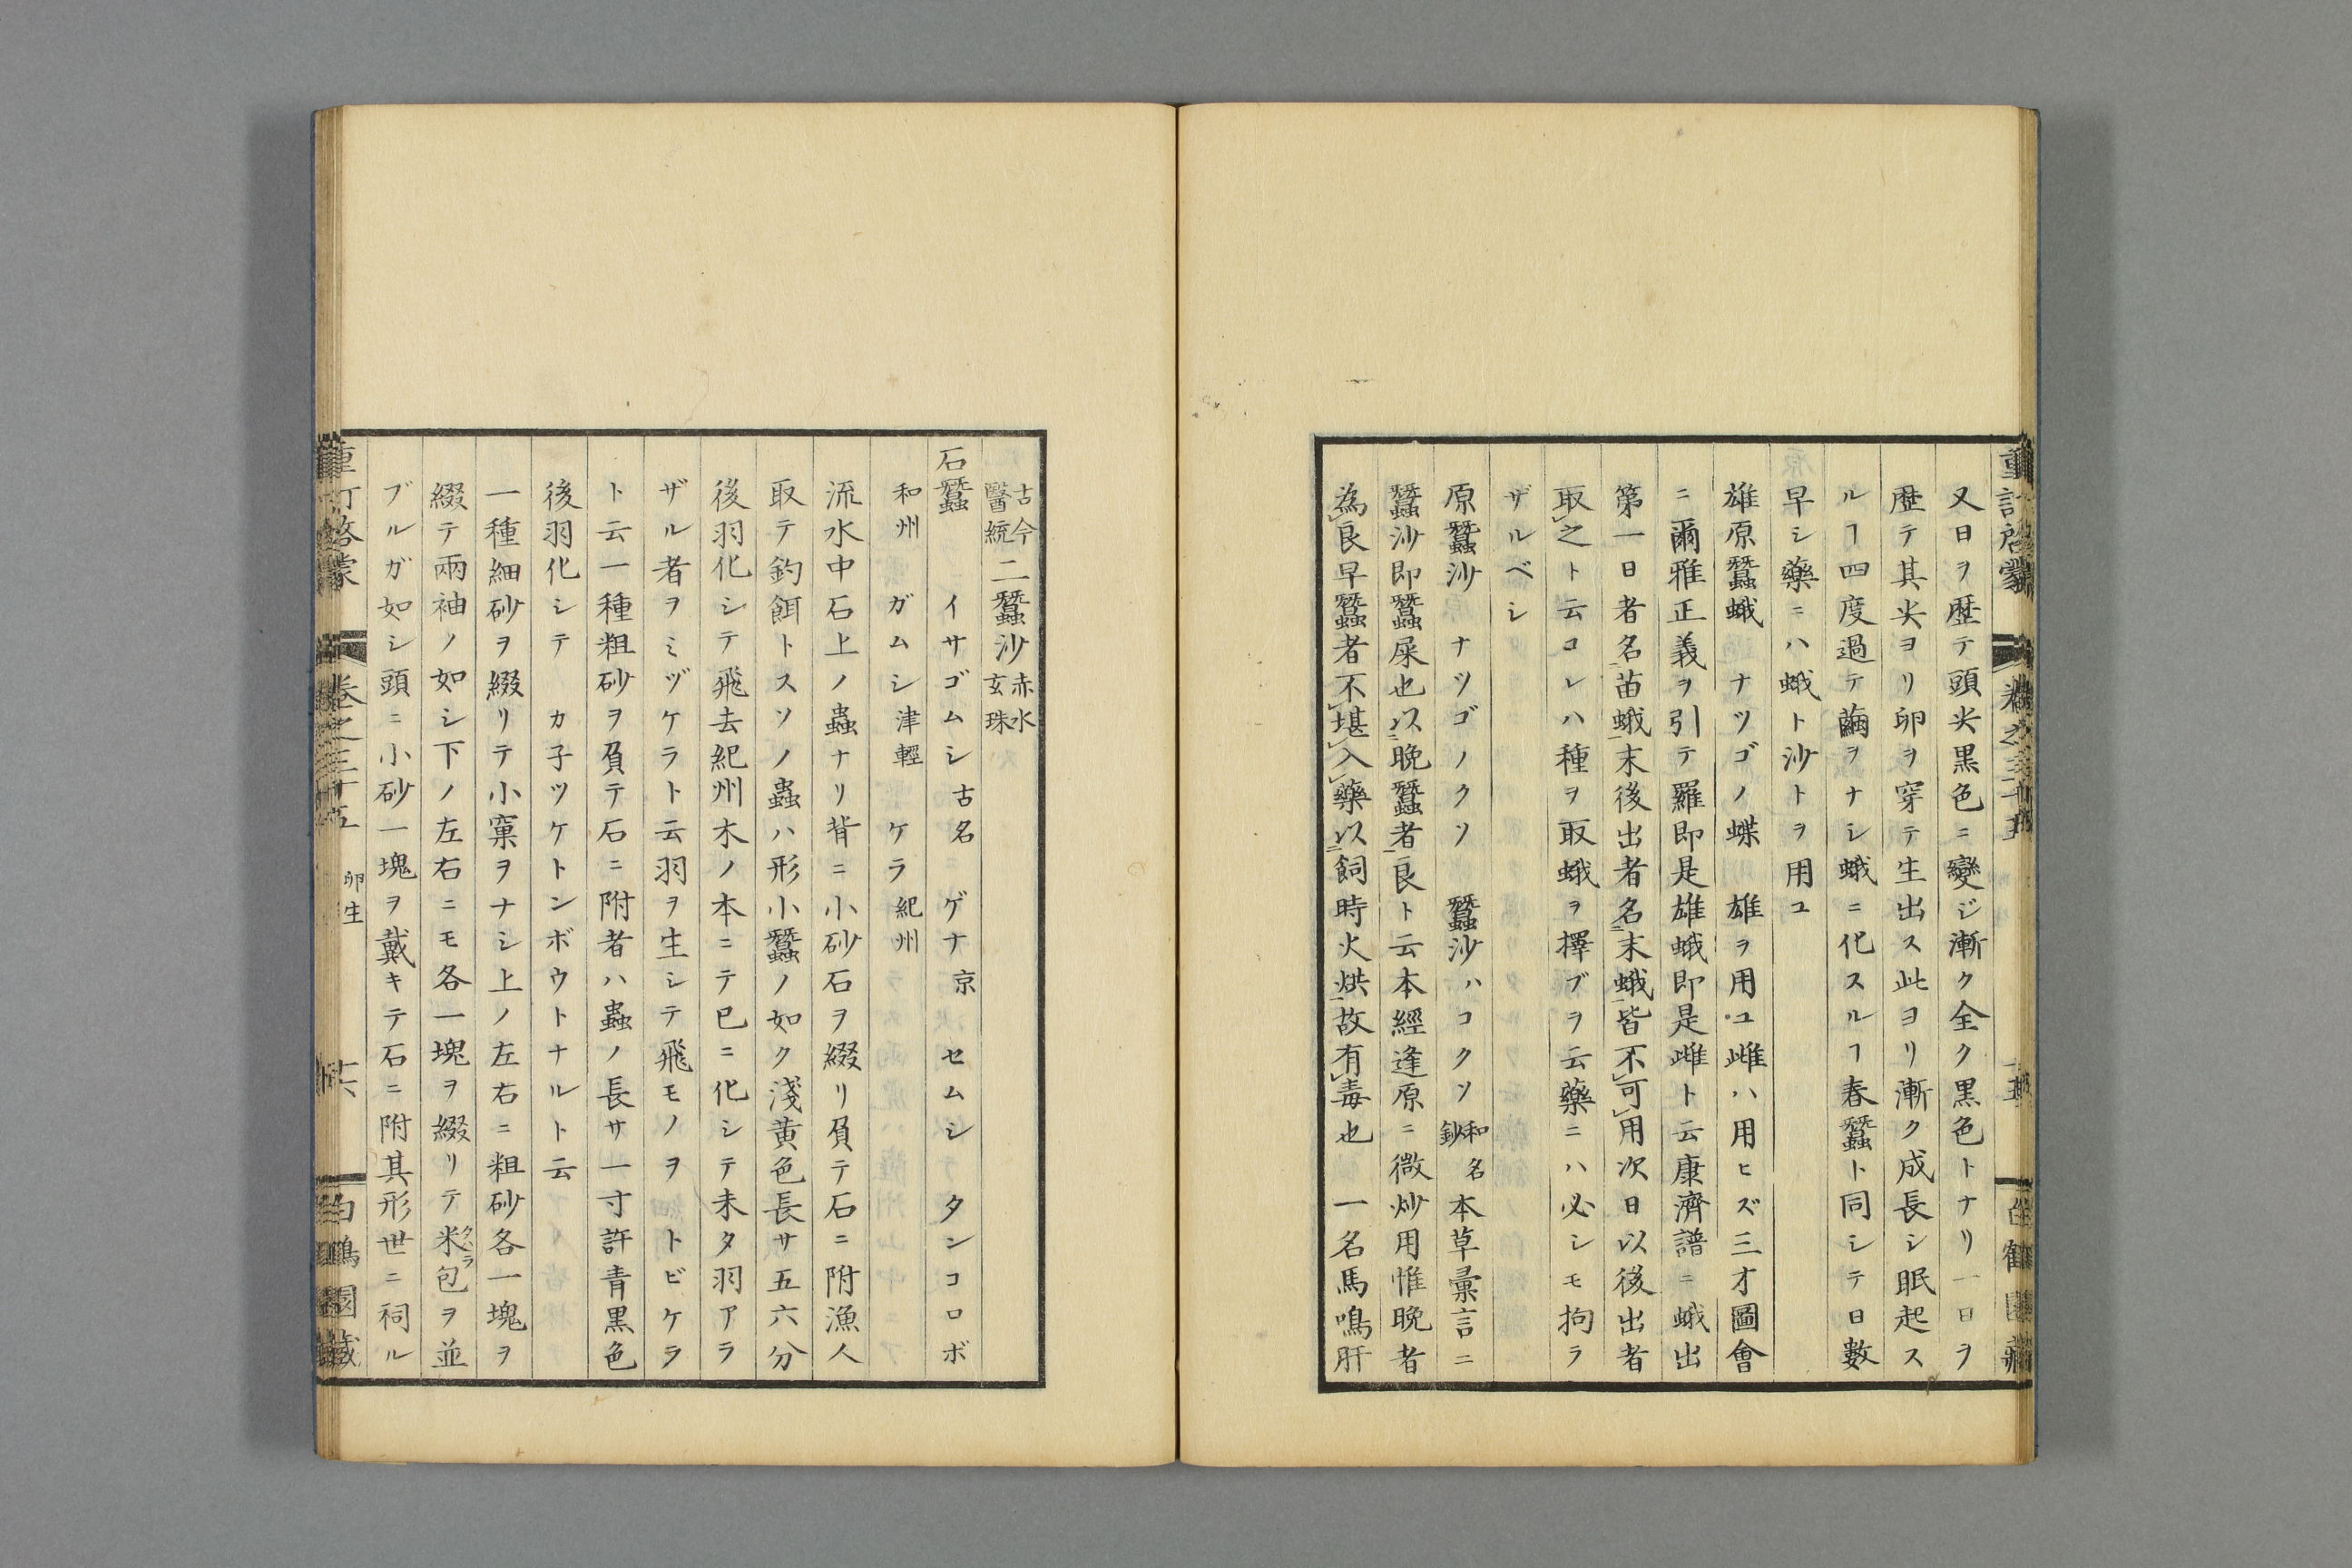 又日ヲ歴テ頭尖黒色ニ變ジ漸ク全ク黒色トナリ一日ヲ
歴テ其尖ヨリ卵ヲ穿テ生出ス此ヨリ漸ク成長シ眠起ス
ルヿ四度過テ繭ヲナシ蛾ニ化スルヿ春蠶ト同シテ日數
早シ藥ニハ蛾ト沙トヲ用ユ
雄原蠶蛾 ナツゴノ蝶 雄ヲ用ユ雌ハ用ヒズ三才圖會
ニ爾雅正義ヲ引テ羅即是雄蛾即是雌ト云康濟譜ニ蛾出
第一日者名苗蛾末後出者名末蛾皆不可用次日以後出者
取之ト云コレハ種ヲ取蛾ヲ擇ブヲ云藥ニハ必シモ拘ラ
ザルベシ
原蠶沙 ナツゴノクソ 蠶沙ハコクソ和名鈔本草彙言ニ
蠶沙即蠶屎也以晩蠶者良ト云本經逢原ニ微炒用惟晩者
為良早蠶者不堪入藥以飼時火烘故有毒也 一名馬鳴肝
古今醫統二蠶沙赤水玄珠
石蠶 イサゴムシ古名 ゲナ京 セムシ タンコロボ
和州 ガムシ津輕 ケラ紀州
流水中石上ノ蟲ナリ背ニ小砂石ヲ綴リ負テ石ニ附漁人
取テ釣餌トスソノ蟲ハ形小蠶ノ如ク淺黄色長サ五六分
後羽化シテ飛去紀州木ノ本ニテ已ニ化シテ未タ羽アラ
ザル者ヲミヅケラト云羽ヲ生シテ飛モノヲ トビケラ
ト云一種粗砂ヲ負テ石ニ附者ハ蟲ノ長サ一寸許青黒色
後羽化シテ カ子ツケトンボウトナルト云
一種細砂ヲ綴リテ小窠ヲナシ上ノ左右ニ粗砂各一塊ヲ
綴テ兩袖ノ如シ下ノ左右ニモ各一塊ヲ綴リテ米包ヲ並
ブルガ如シ頭ニ小砂一塊ヲ戴キテ石ニ附其形世ニ祠ル
重訂啓蒙 卷之三十五 卵生 十六